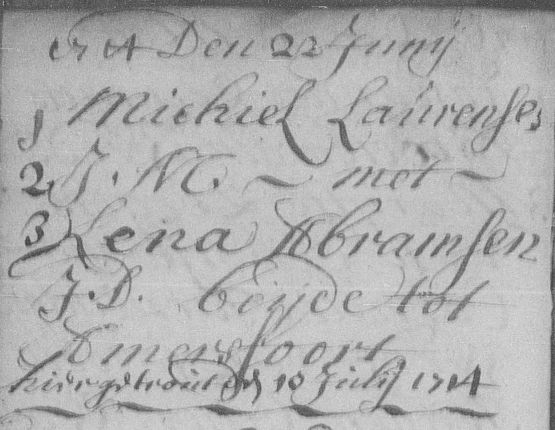 1714 Den 22 Junij
1 Michiel Laúrenses
2 J. M ~ met ~
3 Lena Abramsen
J. D. beijde tot
Amersfoort
hier getroút den 10 Julij 1714